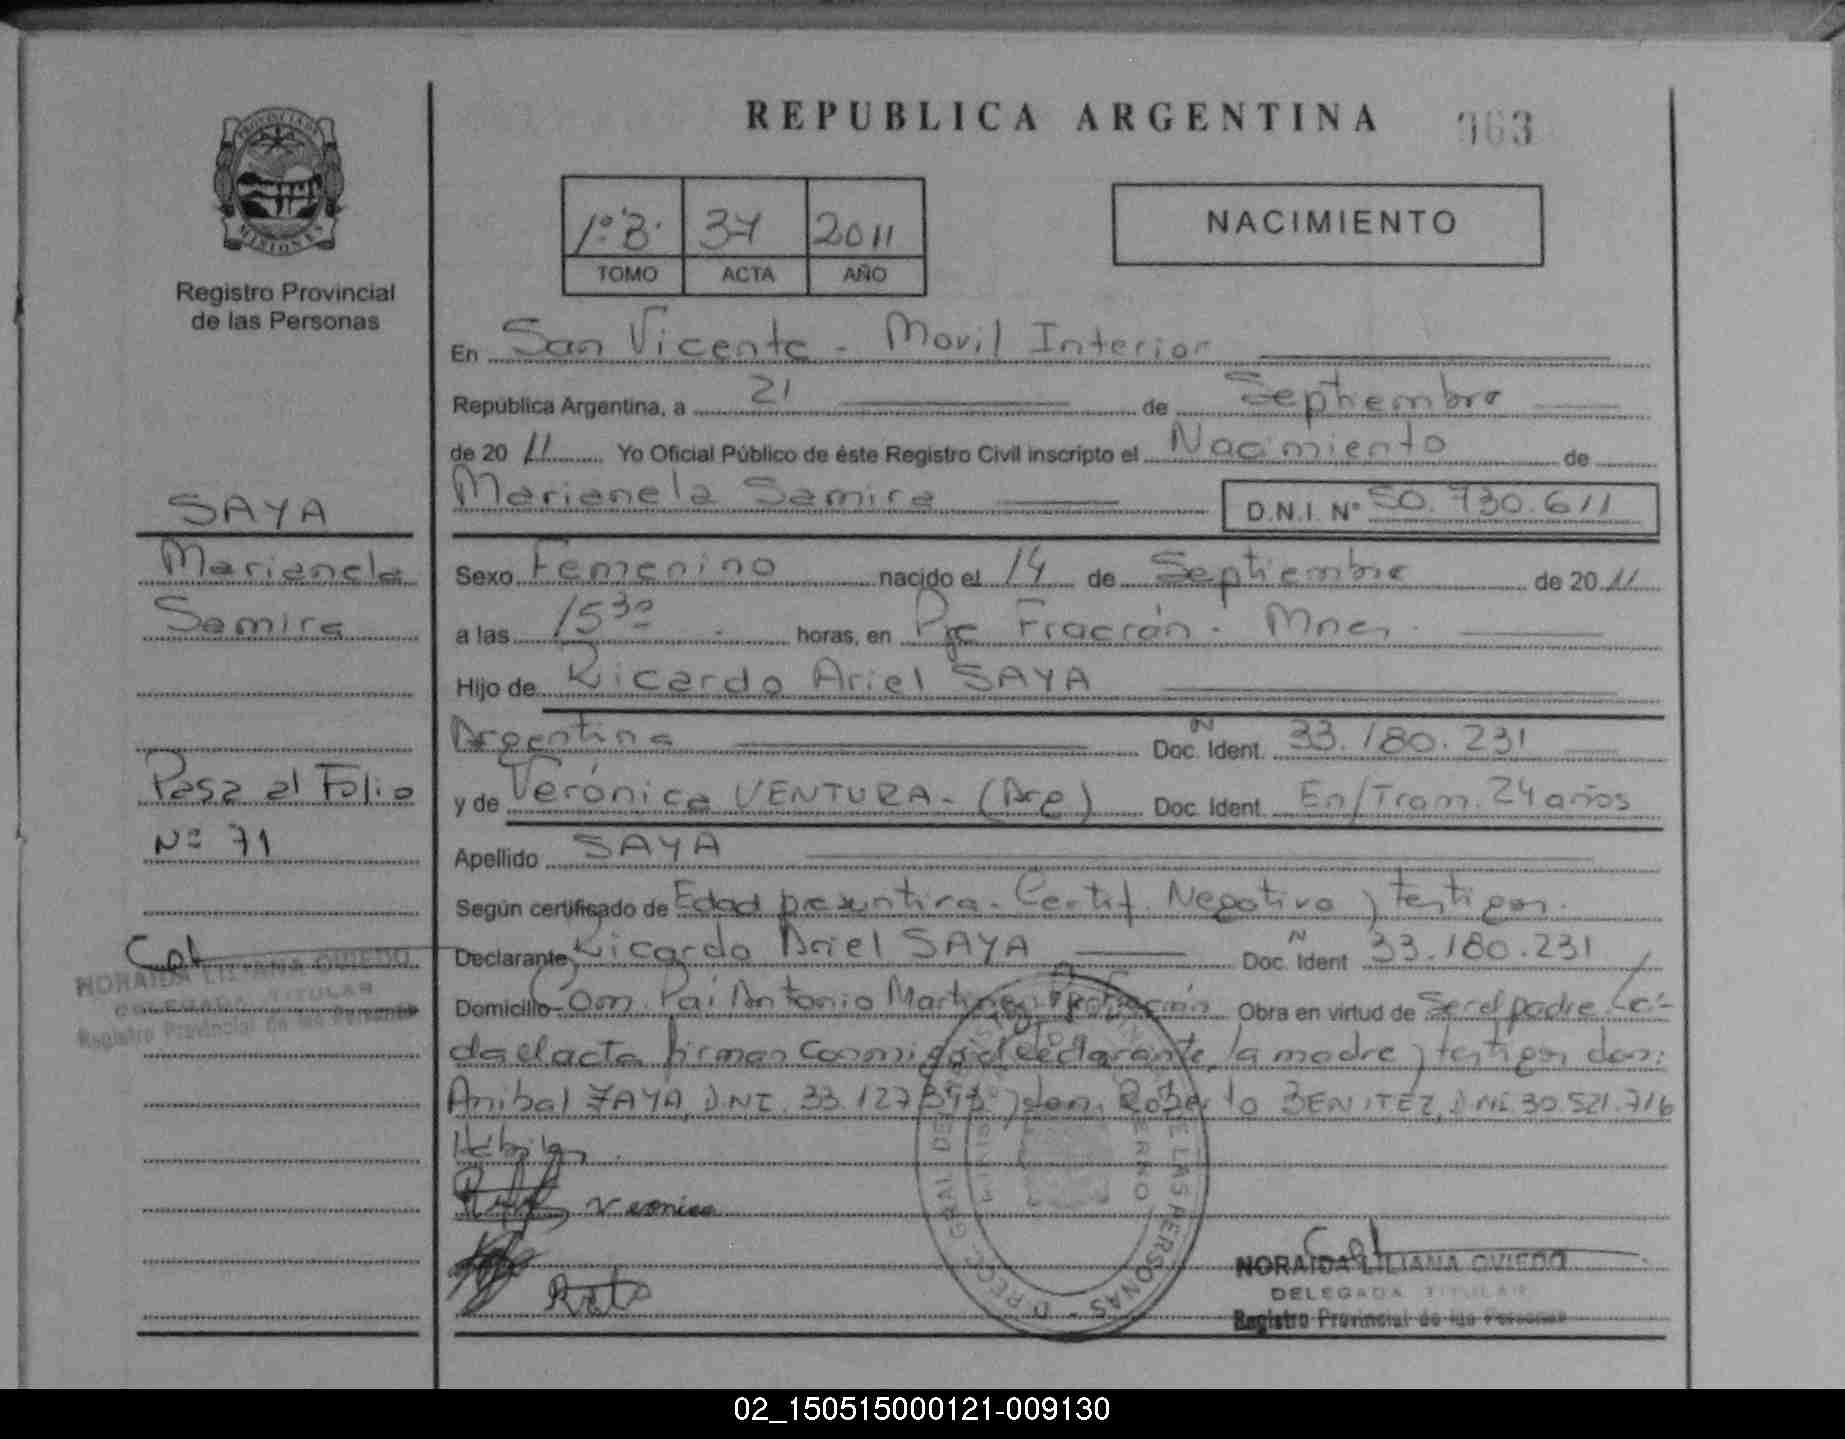 REPUBLICA ARGENTINA
363
PROVINCIA DE
MISIONES
Registro Provincial
de las Personas
1º B. 37 2011
TOMO ACTA AÑO
NACIMIENTO
En San Vicente - Movil Interior
República Argentina, a 21 de Septiembre
de 20 11 Yo Oficial Público de éste Registro Civil inscripto el Nacimiento de
Marianela Samira D.N.I. Nº 50.730.611
SAYA
Marianela
Samira
Pasa al Folio
Nº 71
NORAIDA LILIANA OVIEDO
DELEGADA TITULAR
Registro Provincial de las Personas
Sexo Femenino nacido el 14 de Septiembre de 20 11
a las 15 30 horas, en Pje Fracrán - Mnes.
Hijo de Ricardo Ariel SAYA
Argentina Doc. Ident. N 33.180.231
y de Verónica VENTURA - (Arg) Doc. Ident. En/Tram. 24 años
Apellido SAYA
Según certificado de Edad presuntiva - Certif. Negativo y testigos.
Declarante Ricardo Ariel SAYA Doc. Ident N 33.180.231
Domicilio Com. Pai Antonio Martinez Obra en virtud de Ser el padre - Leí-
da el acta firman conmigo el declarante, la madre y testigos don:
Anibal ZAYA, DNI. 33.127 y don Roberto BENITEZ, DNI 30.521.716
Veronica
DE LAS PERSONAS
NORAIDA LILIANA OVIEDO
DELEGADA TITULAR
Registro Provincial de las Personas
02_150515000121-009130